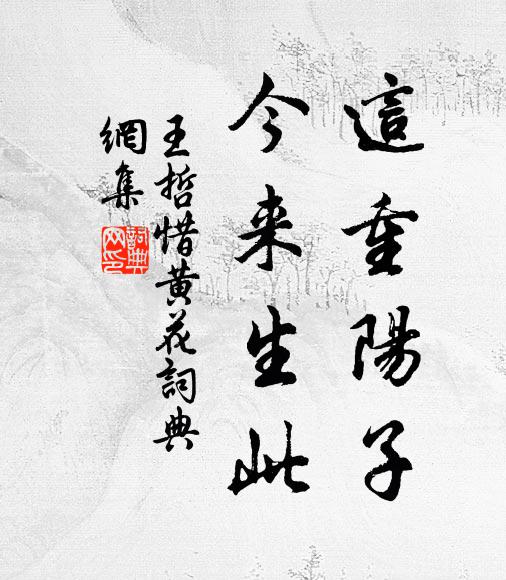 這重陽子
今来生此
王哲惜黄花詞典
網集
詞典
网印